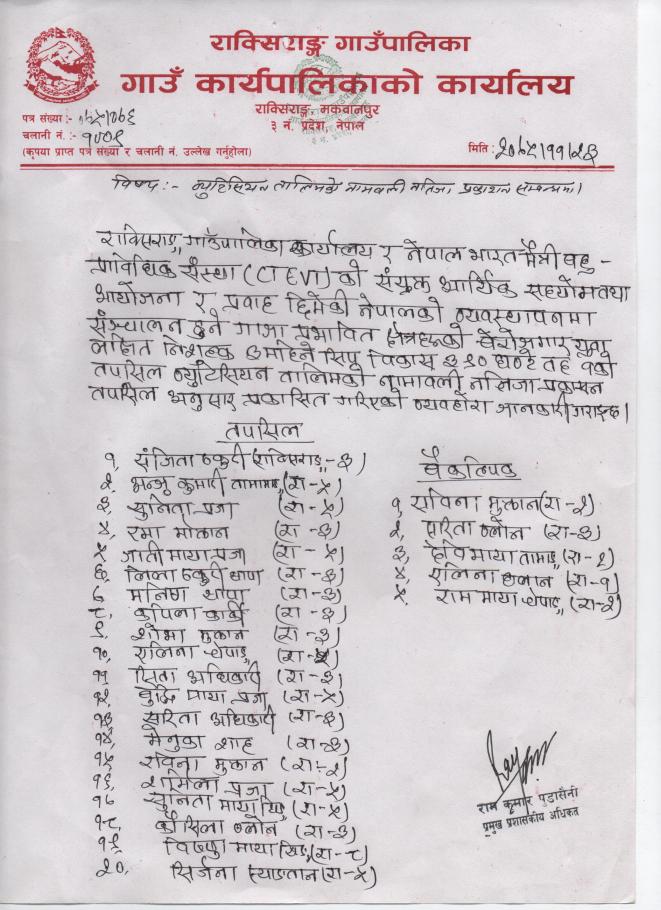 राक्सिराङ्ग गाउँपालिका
गाउँ कार्यपालिकाको कार्यालय
राक्सिराङ्ग, मकवानपुर
३ नं. प्रदेश, नेपाल
पत्र संख्या :- ०७५/०७६
चलानी नं. :- १००९
(कृपया प्राप्त पत्र संख्या र चलानी नं. उल्लेख गर्नुहोला)
मिति : २०७५/११/२३
विषय :- ब्युटिसियन तालिमको नामवली नतिजा प्रकाशन सम्बन्धमा।
राक्सिराङ्ग गाउँपालिका कार्यालय र नेपाल भारत मैत्री बहु -
प्राविधिक संस्था (CTEVT) को संयुक्त आर्थिक सहयोग तथा
आयोजना र प्रवाह छिमेकी नेपालको व्यवस्थापनमा
संञ्चालन हुने गाजा प्रभावित क्षेत्रहरुको बेरोजगार युवा
लक्षित निशुल्क ३ महिने सिप विकास ३९० घण्टे तह १ को
तपसिल ब्युटिसियन तालिमको नामावली नतिजा प्रकासन
तपसिल अनुसार प्रकासित गरिएको व्यवहोरा जानकारी गराइन्छ।
तपसिल
१, संजिता ठकुरी (राक्सिराङ्ग-३)
२, मन्जु कुमारी तामाङ (रा-५)
३, सुनिता प्रजा (रा-५)
४, रमा मोक्तान (रा-३)
५, जाती माया प्रजा (रा-५)
६, लिला ठकुरी थापा (रा-३)
७ मनिषा थापा (रा-३)
८, कपिला कार्की (रा-३)
९, शोभा मुक्तान (रा-३)
१०, एलिना चेपाङ्ग (रा-५)
११ सिता अधिकारी (रा-३)
१२, बुद्धि माया प्रजा (रा-५)
१३ सरिता अधिकारी (रा-३)
१४, मेनुका शाह (रा-३)
१५ रविना मुक्तान (रा-२)
१६, शर्मिला प्रजा (रा-५)
१७ सुनिता माया (रा-५)
१८, कौसिला ब्लोन (रा-३)
१९, विष्णु माया (रा-८)
२०, सिर्जना स्याङतान (रा-५)
बैकल्पिक
१, रविना मुक्तान (रा-२)
२, सरिता ब्लोन (रा-३)
३, देवि माया तामाङ (रा-२)
४, एलिना (रा-१)
५, राम माया चेपाङ्ग (रा-२)
राम कुमार पुडासैनी
प्रमुख प्रशासकीय अधिकृत